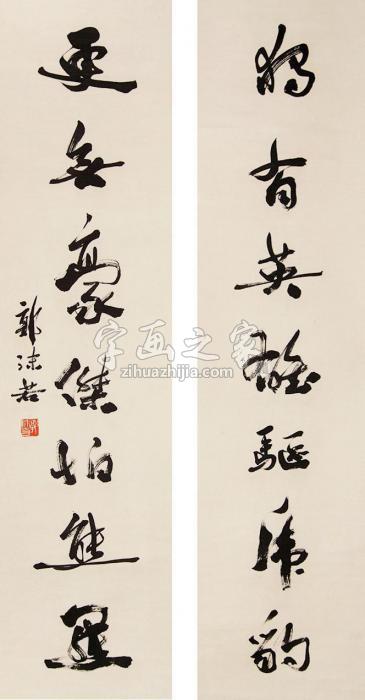 独有英雄驱虎豹
更无豪杰怕熊罴
郭沫若
字画之家
zihuazhijia.com